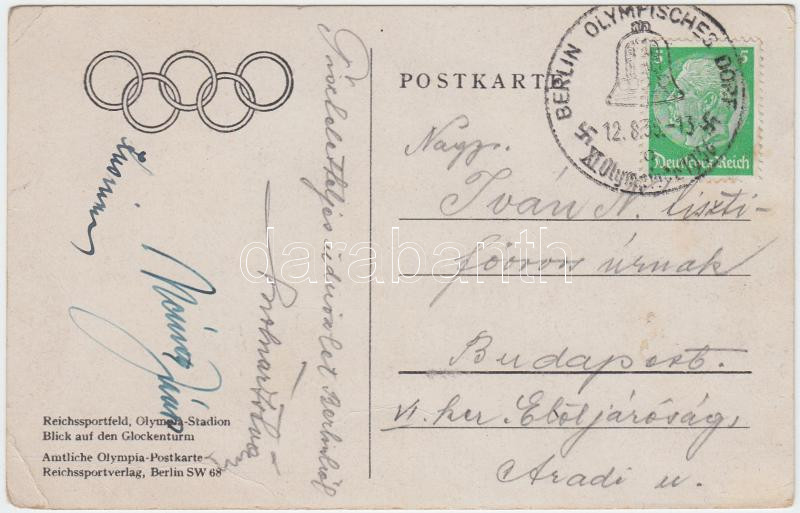 POSTKART
BERLIN OLYMPISCHES DORF
12.8.36.-13
XI. Olympische
5 5
Deutsches Reich
Nagys.
Iván N. tiszti-
főorvos úrnak
Budapest.
VI. ker Elöljáróság,
Aradi u.
Tiszteletteljes üdvözlet Berlinből
Reichssportfeld, Olympia-Stadion
Blick auf den Glockenturm
Amtliche Olympia-Postkarte
Reichssportverlag, Berlin SW 68
darabanth